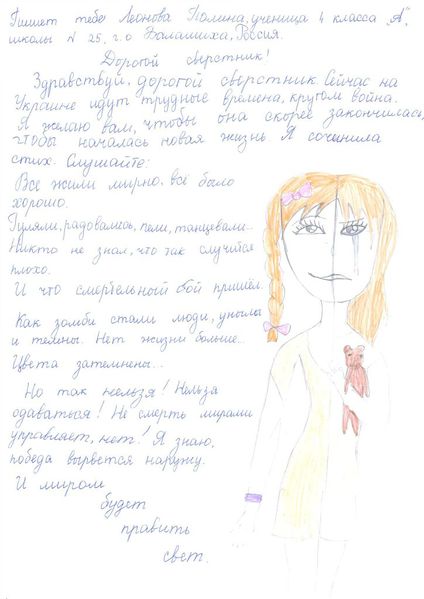 Пишет тебе Леонова Полина, ученица 4 класса „А",
школы N 25, г.о Балашиха, Россия.
Дорогой сверстник!
Здравствуй, дорогой сверстник. Сейчас на
Украине идут трудные времена, кругом война.
Я желаю вам, чтобы она скорее закончилась,
чтобы началась новая жизнь Я сочинила
стих. Слушайте:
Все жили мирно, всё было
хорошо.
Гуляли, радовались, пели, танцевали..
Никто не знал, что так случится
плохо.
И что смертельный бой пришёл.
Как зомби стали люди, унылы
и темны. Нет жизни больше..
Цвета затемнены..
Но так нельзя! Нельзя
сдаваться! Не смерть мирами
управляет, нет! Я знаю,
победа вырвется наружу.
И миром
будет
править
свет.